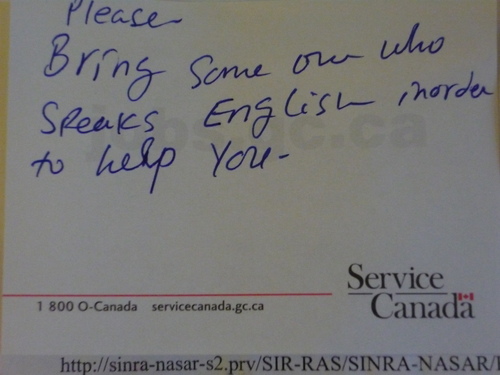 Please
Bring some one who
speaks English inorder
to help You-
jobs.gc.ca
Service
Canada
1 800 O-Canada servicecanada.gc.ca
http://sinra-nasar-s2.prv/SIR-RAS/SINRA-NASAR/